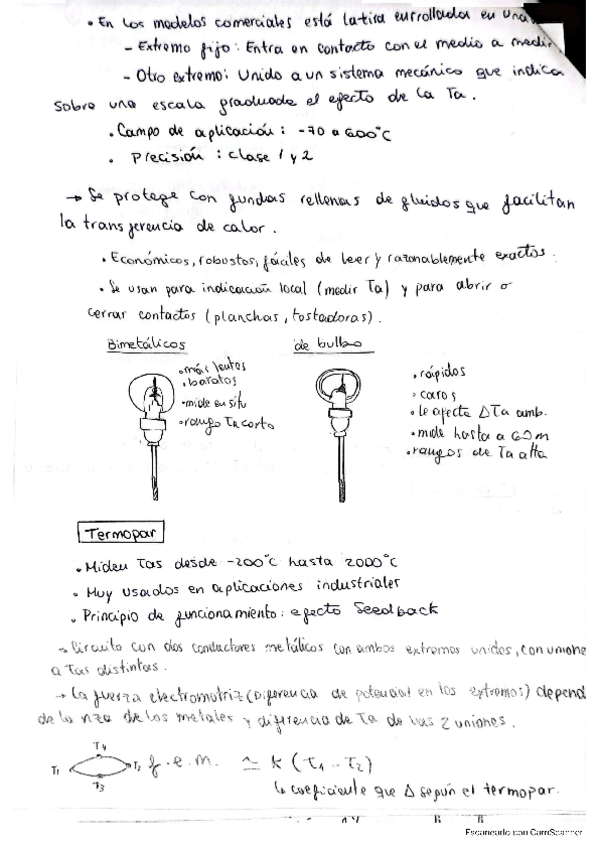 • En los modelos comerciales está la tira enrrollada en una
- Extremo fijo: Entra en contacto con el medio a medir
- Otro extremo: Unido a un sistema mecánico que indica
sobre una escala graduada el efecto de la Ta.
• Campo de aplicación: -70 a 600°C
• Precisión: clase 1 y 2
→ Se protege con fundas rellenas de fluidos que facilitan
la transferencia de calor.
• Económicos, robustos, fáciles de leer y razonablemente exactos.
• Se usan para indicación local (medir Ta) y para abrir o
cerrar contactos (planchas, tostadoras).
Bimetálicos
• más lentos
• baratos
• mide en situ
• rango Ta corto
de bulbo
• rápidos
• caros
• le afecta Δ Ta amb.
• mide hasta a 60m
• rangos de Ta alta
Termopar
• Miden Tas desde -200°C hasta 2000°C
• Muy usados en aplicaciones industriales
• Principio de funcionamiento: efecto Seedback
→ Circuito con dos conductores metálicos con ambos extremos unidos, con unione
a Tas distintas.
→ La fuerza electromotriz (Diferencia de potencial en los extremos) depend
de la nza de los metales y diferencia de Ta de las 2 uniones.
T4
T1 T2 f.e.m. ≃ K (T1 - T2)
T3
↳ coeficiente que Δ según el termopar.
Escaneado con CamScanner